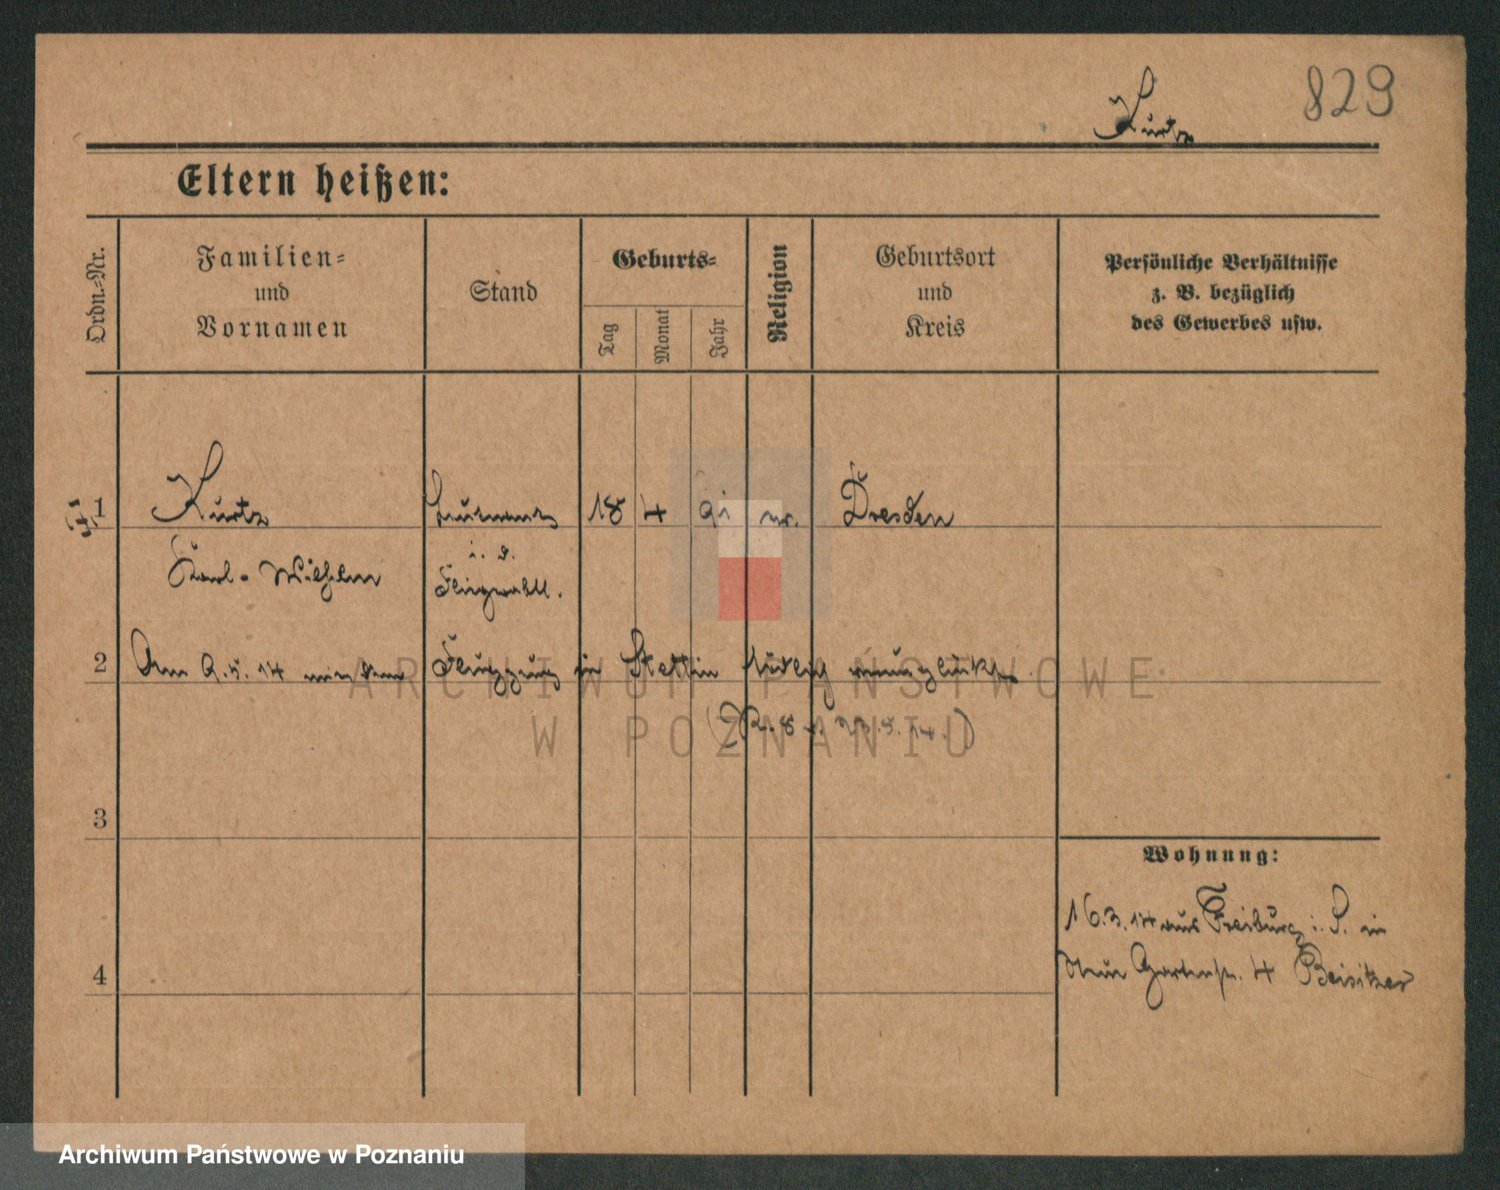 829
Kurtz
Eltern heißen:
Ordn.-Nr.
Familien-
und
Vornamen
Stand
Geburts-
Tag
Monat
Jahr
Religion
Geburtsort
und
Kreis
Persönliche Verhältnisse
z. B. bezüglich
des Gewerbes usw.
1 Kurtz Leutnant 18 4 91 Dresden
Karl-Wilhelm
i. d.
2 Am 9.5.14 mit dem Flugzeug in Stettin tödlich verunglückt
23.5.14.)
3
4
Wohnung:
16.3.14 aus Freiburg i. S. in
Neue Gartenstr. 4 Beisitzer
ARCHIWUM PAŃSTWOWE
W POZNANIU
Archiwum Państwowe w Poznaniu